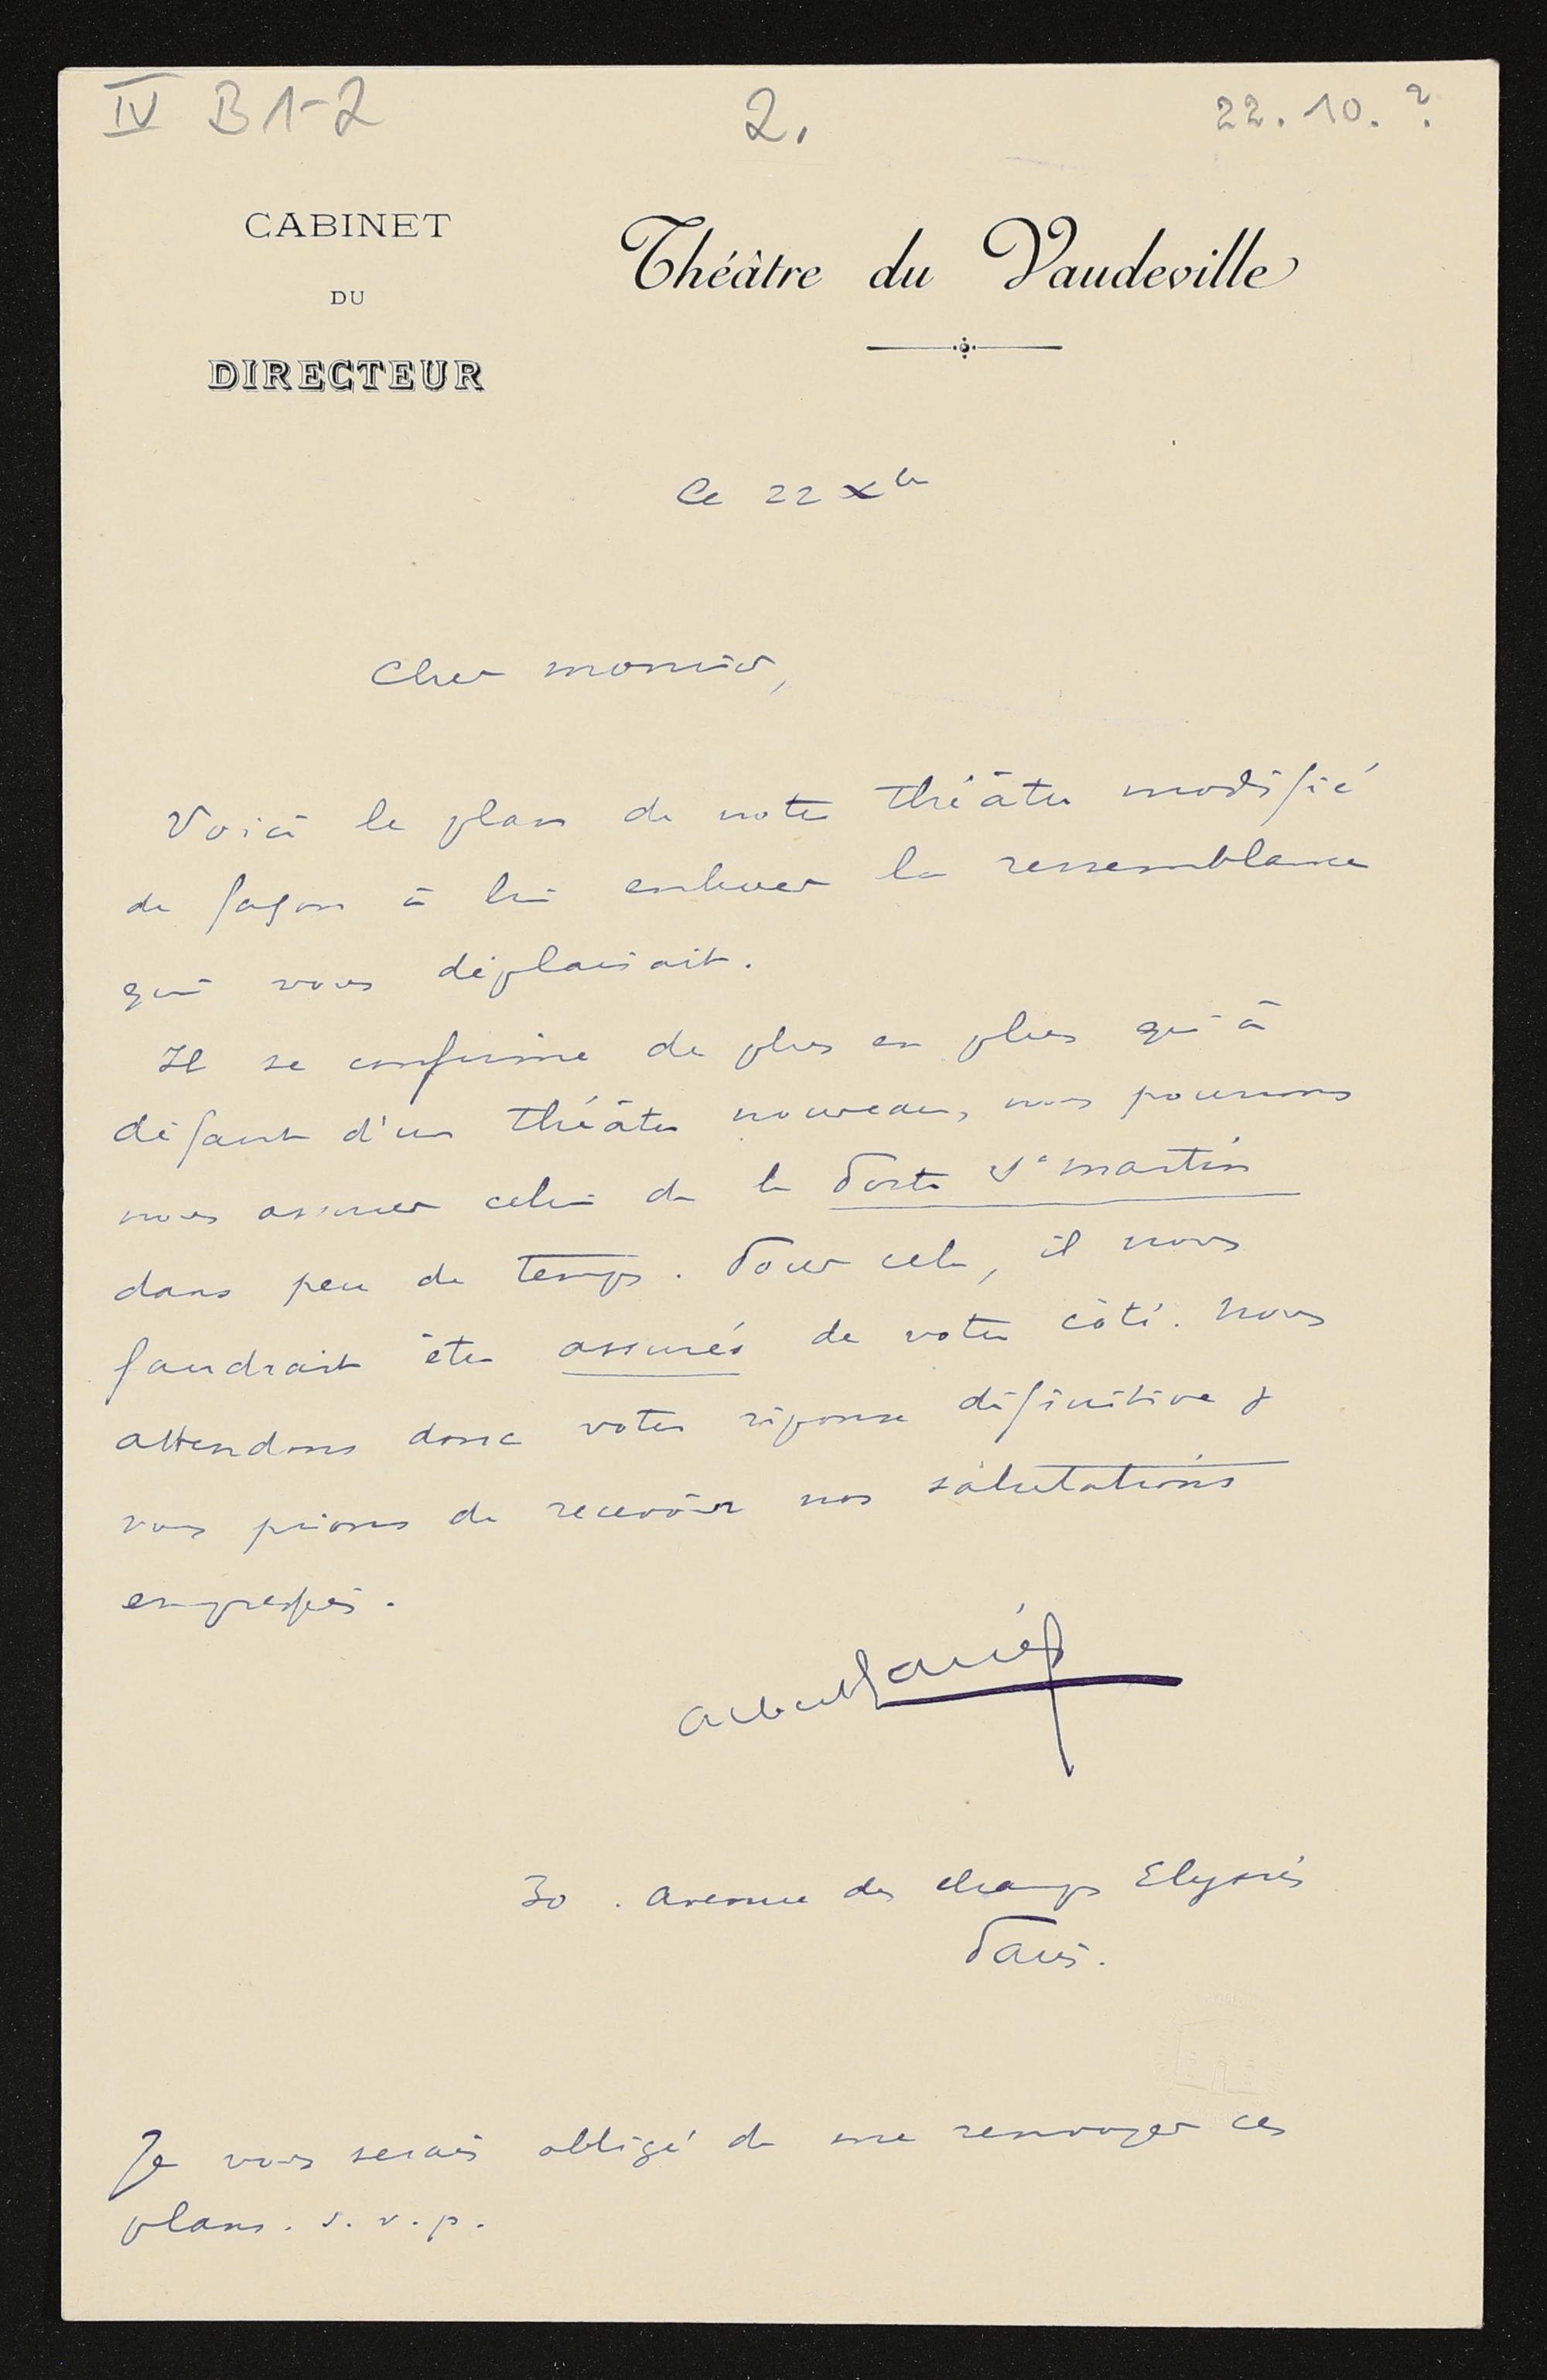 IV B 1-2
2.
22. 10. ?
CABINET
DU
DIRECTEUR
Théâtre du Vaudeville
Ce 22 Xbre
Cher monsieur,
Voici le plan de notre théâtre modifié
de façon à lui enlever la ressemblance
qui vous déplaisait.
Il se confirme de plus en plus qu'à
défaut d'un théâtre nouveau, nous pourrions
nous assurer celui de la Porte St martin
dans peu de temps. Pour cela, il nous
faudrait être assurés de votre côté. Nous
attendons donc votre réponse définitive &
vous prions de recevoir nos salutations
empressées.
Albert Carré
30. avenue des champs Elysées
Paris.
Je vous serais obligé de me renvoyer ces
plans. s. v. p.